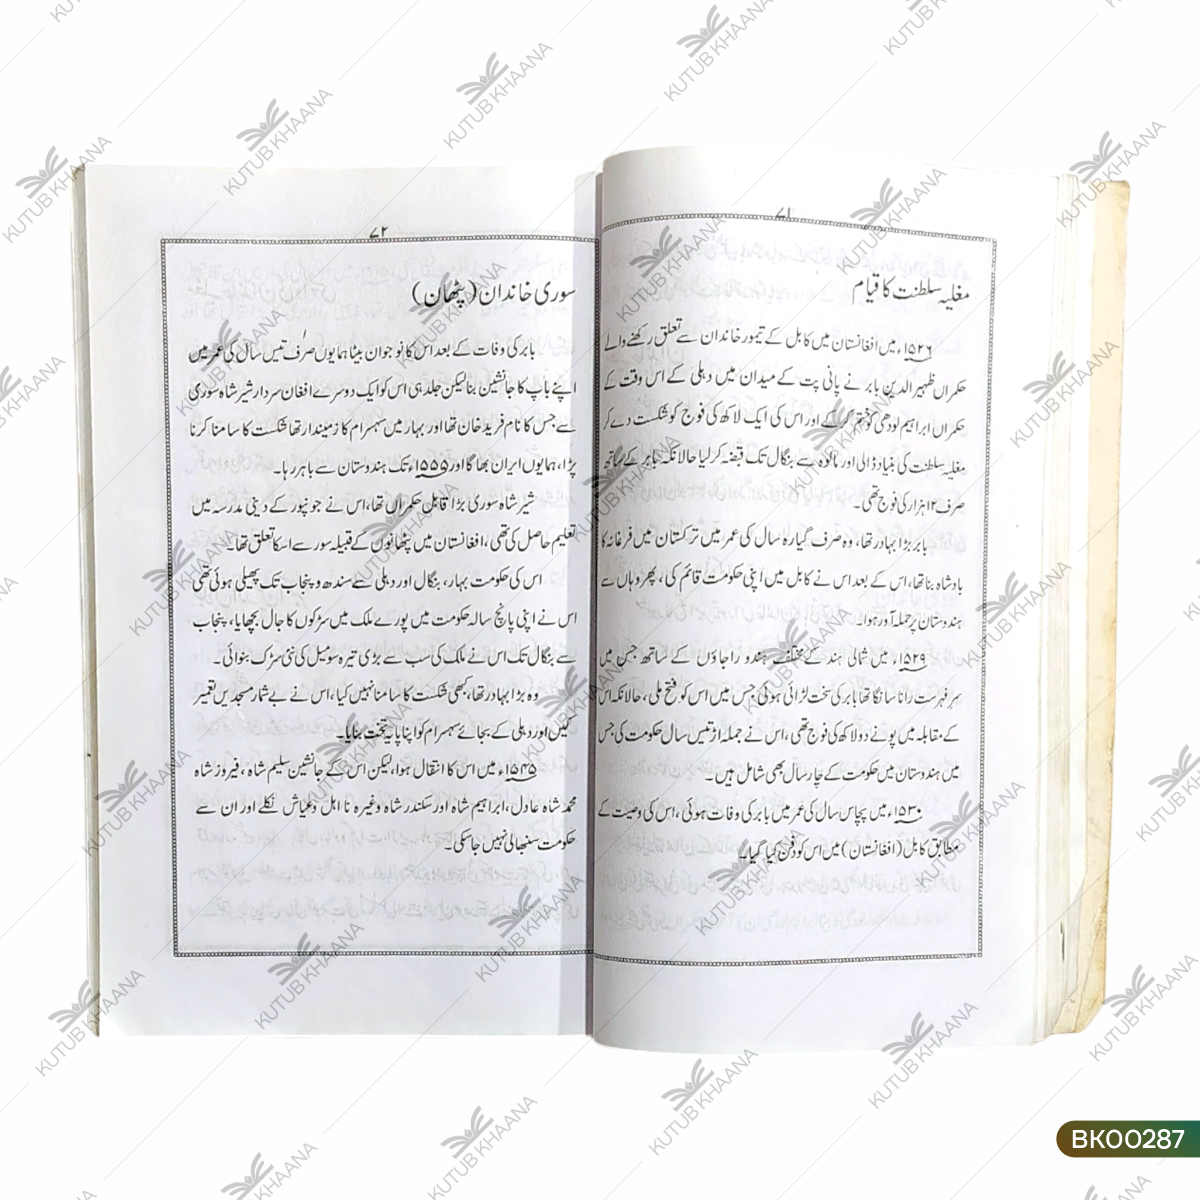 ۷۱
مغلیہ سلطنت کا قیام
۱۵۲۶ء میں افغانستان میں کابل کے تیمور خاندان سے تعلق رکھنے والے
حکمراں ظہیر الدین بابر نے پانی پت کے میدان میں دہلی کے اس وقت کے
حکمراں ابراہیم لودھی کو ختم کرکے اور اس کی ایک لاکھ کی فوج کو شکست دے کر
مغلیہ سلطنت کی بنیاد ڈالی اور مالوہ سے بنگال تک قبضہ کرلیا حالانکہ بابر کے ساتھ
صرف ۱۲ ہزار کی فوج تھی۔
بابر بڑا بہادر تھا، وہ صرف گیارہ سال کی عمر میں ترکستان میں فرغانہ کا
بادشاہ بنا تھا، اس کے بعد اس نے کابل میں اپنی حکومت قائم کی، پھر وہاں سے
ہندوستان پر حملہ آور ہوا۔
۱۵۲۹ء میں شمالی ہند کے مختلف ہندو راجاؤں کے ساتھ جس میں
سر فہرست رانا سانگا تھا بابر کی سخت لڑائی ہوئی جس میں اس کو فتح ملی، حالانکہ اس
کے مقابلہ میں پونے دو لاکھ کی فوج تھی، اس نے جملہ اڑتیس سال حکومت کی جس
میں ہندوستان میں حکومت کے چار سال بھی شامل ہیں۔
۱۵۳۰ء میں پچاس سال کی عمر میں بابر کی وفات ہوئی، اس کی وصیت کے
مطابق کابل (افغانستان) میں اس کو دفن کیا گیا۔
۷۲
سوری خاندان (پٹھان)
بابر کی وفات کے بعد اس کا نوجوان بیٹا ہمایوں صرف تیس سال کی عمر میں
اپنے باپ کا جانشین بنا لیکن جلد ہی اس کو ایک دوسرے افغان سردار شیر شاہ سوری
سے جس کا نام فرید خان تھا اور بہار میں سہسرام کا زمیندار تھا شکست کا سامنا کرنا
پڑا، ہمایوں ایران بھاگا اور ۱۵۵۵ء تک ہندوستان سے باہر رہا۔
شیر شاہ سوری بڑا قابل حکمراں تھا، اس نے جونپور کے دینی مدرسہ میں
تعلیم حاصل کی تھی، افغانستان میں پٹھانوں کے قبیلہ سور سے اسکا تعلق تھا۔
اس کی حکومت بہار، بنگال اور دہلی سے سندھ و پنجاب تک پھیلی ہوئی تھی
اس نے اپنی پانچ سالہ حکومت میں پورے ملک میں سڑکوں کا جال بچھایا، پنجاب
سے بنگال تک اس نے ملک کی سب سے بڑی تیرہ سو میل کی نئی سڑک بنوائی۔
وہ بڑا بہادر تھا، کبھی شکست کا سامنا نہیں کیا، اس نے بے شمار مسجدیں تعمیر
کیں اور دہلی کے بجائے سہسرام کو اپنا پایہ تخت بنایا۔
۱۵۴۵ء میں اس کا انتقال ہوا، لیکن اس کے جانشین سلیم شاہ، فیروز شاہ
محمد شاہ عادل، ابراہیم شاہ اور سکندر شاہ وغیرہ نا اہل و عیاش نکلے اور ان سے
حکومت سنبھالی نہیں جاسکی۔
KUTUB KHAANA
BK00287